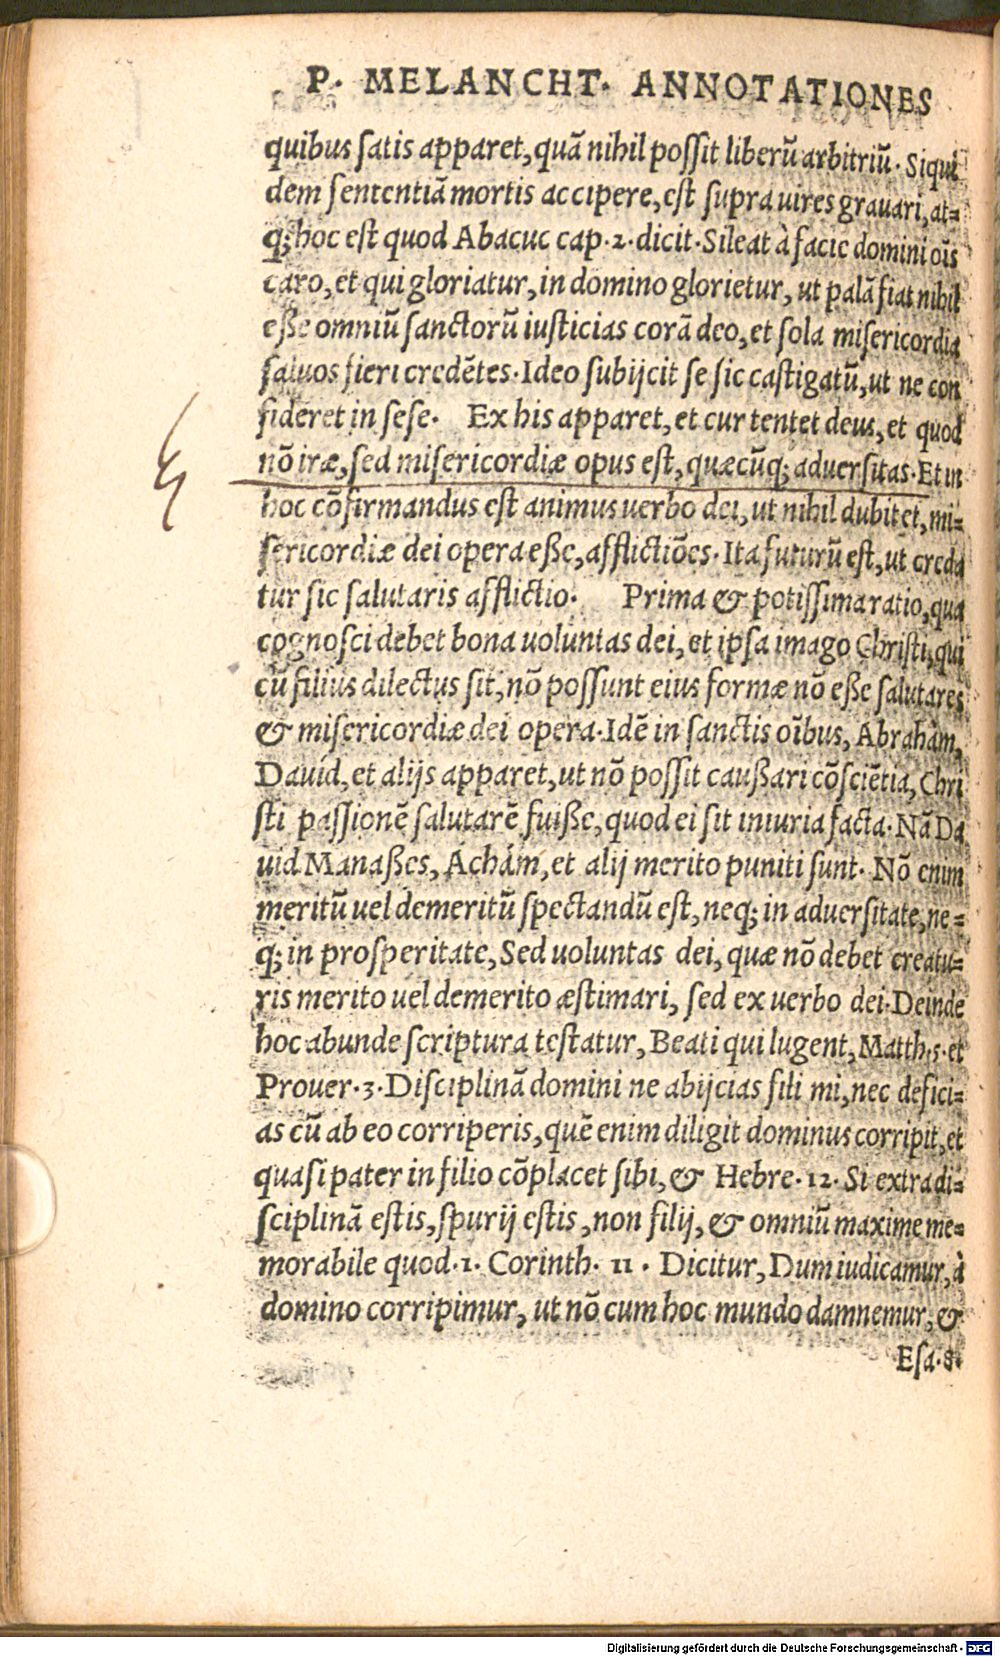 P. MELANCHT. ANNOTATIONES
quibus ſatis apparet, quã nihil poſſit liberũ arbitriũ. Siqui
dem ſententiã mortis accipere, eſt ſupra uires grauari, at=
q; hoc eſt quod Abacuc cap. 2. dicit. Sileat à facie domini oĩs
caro, et qui gloriatur, in domino glorietur, ut palã fiat nihil
eße omniũ ſanctorũ iuſticias corã deo, et ſola miſericordia
ſaluos fieri credẽtes. Ideo ſubijcit ſe ſic caſtigatũ, ut ne con
fideret in ſeſe. Ex his apparet, et cur tentet deus, et quod
nõ iræ, ſed miſericordiæ opus eſt, quæcũq; aduerſitas. Et in
hoc cõfirmandus eſt animus uerbo dei, ut nihil dubitet, mi=
ſericordiæ dei opera eße, afflictiões. Ita futurũ eſt, ut creda
tur ſic ſalutaris afflictio. Prima & potiſſima ratio, qua
cognoſci debet bona uoluntas dei, et ipſa imago Chriſti, qui
cũ filius dilectus ſit, nõ poſſunt eius formæ nõ eße ſalutares
& miſericordiæ dei opera. Idẽ in ſanctis oĩbus, Abrahàm,
Dauid, et alijs apparet, ut nõ poſſit caußari cõſciẽtia, Chri
ſti paſſionẽ ſalutarẽ fuiße, quod ei ſit iniuria facta. Nã Da
uid Manaßes, Achám, et alij merito puniti ſunt. Nõ enim
meritũ uel demeritũ ſpectandũ eſt, neq; in aduerſitate, ne=
q; in proſperitate, Sed uoluntas dei, quæ nõ debet creatu=
ris merito uel demerito æſtimari, ſed ex uerbo dei. Deinde
hoc abunde ſcriptura teſtatur, Beati qui lugent, Matth. 5. et
Prouer. 3. Diſciplinã domini ne abijcias fili mi, nec defici=
as cũ ab eo corriperis, quẽ enim diligit dominus corripit, et
quaſi pater in filio cõplacet ſibi, & Hebre. 12. Si extra di=
ſciplinã eſtis, ſpurij eſtis, non filij, & omniũ maxime me=
morabile quod. 1. Corinth. 11. Dicitur, Dum iudicamur, à
domino corripimur, ut nõ cum hoc mundo damnemur, &
Eſa. 8.
Digitalisierung gefördert durch die Deutsche Forschungsgemeinschaft - DFG